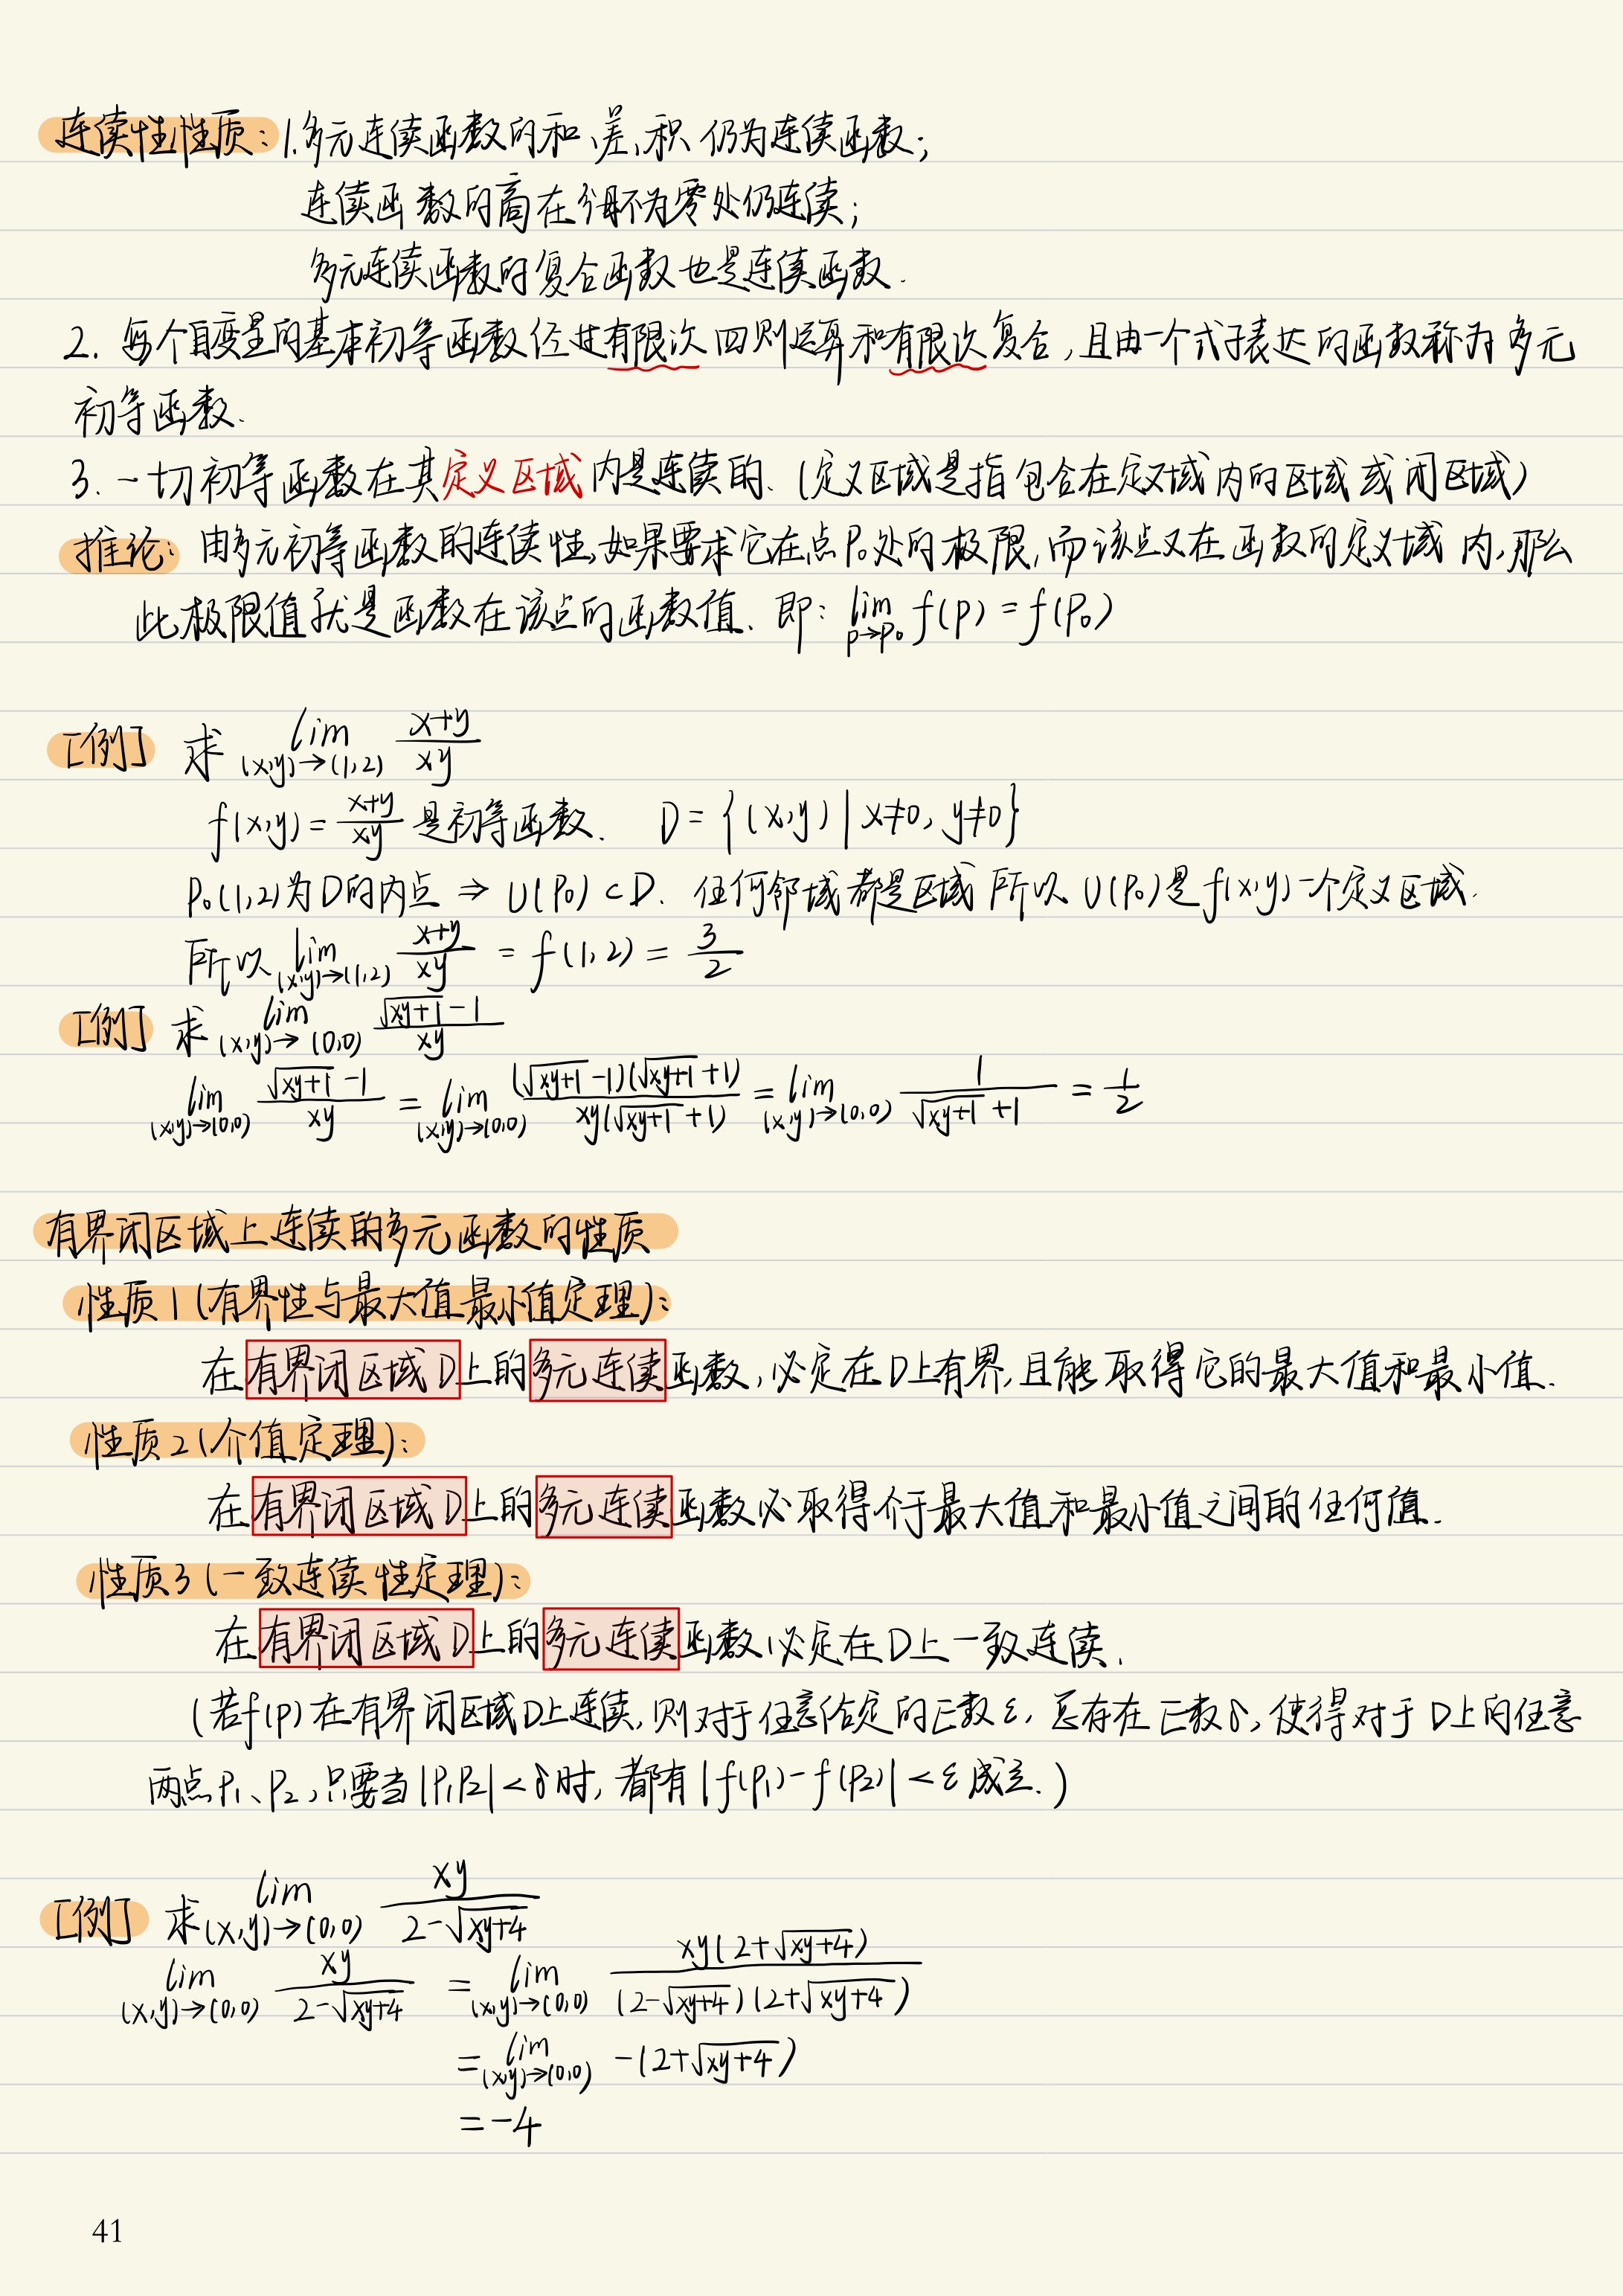 连续性性质：1.多元连续函数的和、差、积仍为连续函数；
连续函数的商在分母不为零处仍连续；
多元连续函数的复合函数也是连续函数.
2. 每个自变量的基本初等函数经过有限次四则运算和有限次复合，且由一个式子表达的函数称为多元
初等函数.
3. 一切初等函数在其定义区域内是连续的.（定义区域是指包含在定义域内的区域或闭区域）
推论：由多元初等函数的连续性，如果要求它在点P₀处的极限，而该点又在函数的定义域内，那么
此极限值就是函数在该点的函数值. 即：lim_{P→P₀} f(P) = f(P₀)
[例] 求 lim_{(x,y)→(1,2)} (x+y)/(xy)
f(x,y) = (x+y)/(xy) 是初等函数. D = {(x,y) | x≠0, y≠0}
P₀(1,2)为D的内点 ⇒ U(P₀) ⊂ D. 任何邻域都是区域 所以 U(P₀)是f(x,y)一个定义区域.
所以 lim_{(x,y)→(1,2)} (x+y)/(xy) = f(1,2) = 3/2
[例] 求 lim_{(x,y)→(0,0)} (√(xy+1) - 1)/(xy)
lim_{(x,y)→(0,0)} (√(xy+1) - 1)/(xy) = lim_{(x,y)→(0,0)} (√(xy+1) - 1)(√(xy+1) + 1)/(xy(√(xy+1) + 1)) = lim_{(x,y)→(0,0)} 1/(√(xy+1) + 1) = 1/2
有界闭区域上连续的多元函数的性质
性质1（有界性与最大值最小值定理）：
在有界闭区域D上的多元连续函数，必定在D上有界，且能取得它的最大值和最小值.
性质2（介值定理）：
在有界闭区域D上的多元连续函数必取得介于最大值和最小值之间的任何值.
性质3（一致连续性定理）：
在有界闭区域D上的多元连续函数必定在D上一致连续.
（若f(P)在有界闭区域D上连续，则对于任意给定的正数ε，总存在正数δ，使得对于D上的任意
两点P₁、P₂，只要当|P₁P₂| < δ时，都有|f(P₁) - f(P₂)| < ε成立.）
[例] 求 lim_{(x,y)→(0,0)} xy/(2-√(xy+4))
lim_{(x,y)→(0,0)} xy/(2-√(xy+4)) = lim_{(x,y)→(0,0)} xy(2+√(xy+4))/((2-√(xy+4))(2+√(xy+4)))
= lim_{(x,y)→(0,0)} -(2+√(xy+4))
= -4
41